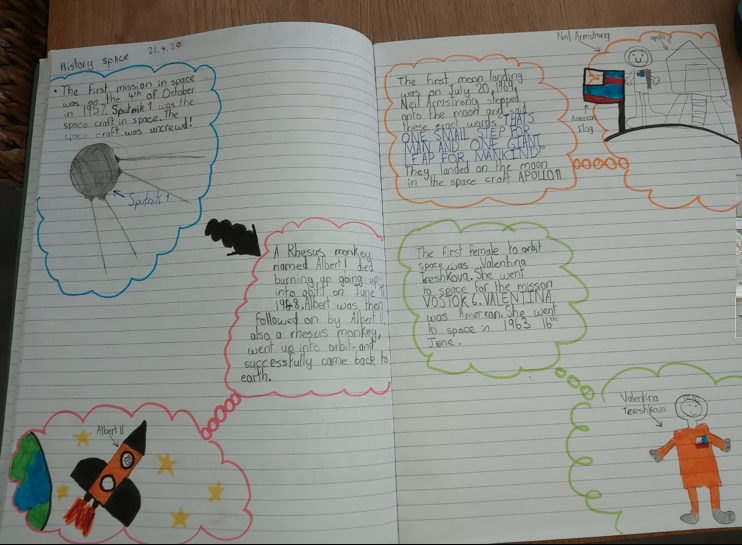 History space
21.4.20
• The first mission in space
was on the 4th of October
in 1957. Sputnik 1 was the
space craft in space. The
space craft was uncrewd!
Sputnik 1
A Rhesus monkey
named Albert 1 died
burning up going up
into orbit on June
1948. Albert was then
followed on by Albert II
also a rhesus monkey,
went up into orbit and
successfully came back to
earth.
Albert II
The first moon landing
was on July 20, 1969,
Neil Armstrong stepped
onto the moon and said
these exact words "THATS
ONE SMALL STEP FOR
MAN AND ONE GIANT
LEAP FOR MANKIND"
They landed on the moon
in the space craft APOLLO 11
Neil Armstrong
flag
The first female to orbit
space was Valentina
Tereshkova. She went
to space for the mission
VOSTOK 6. VALENTINA
was American. She went
to space in 1963 16th
June.
Valentina
Tereshkova